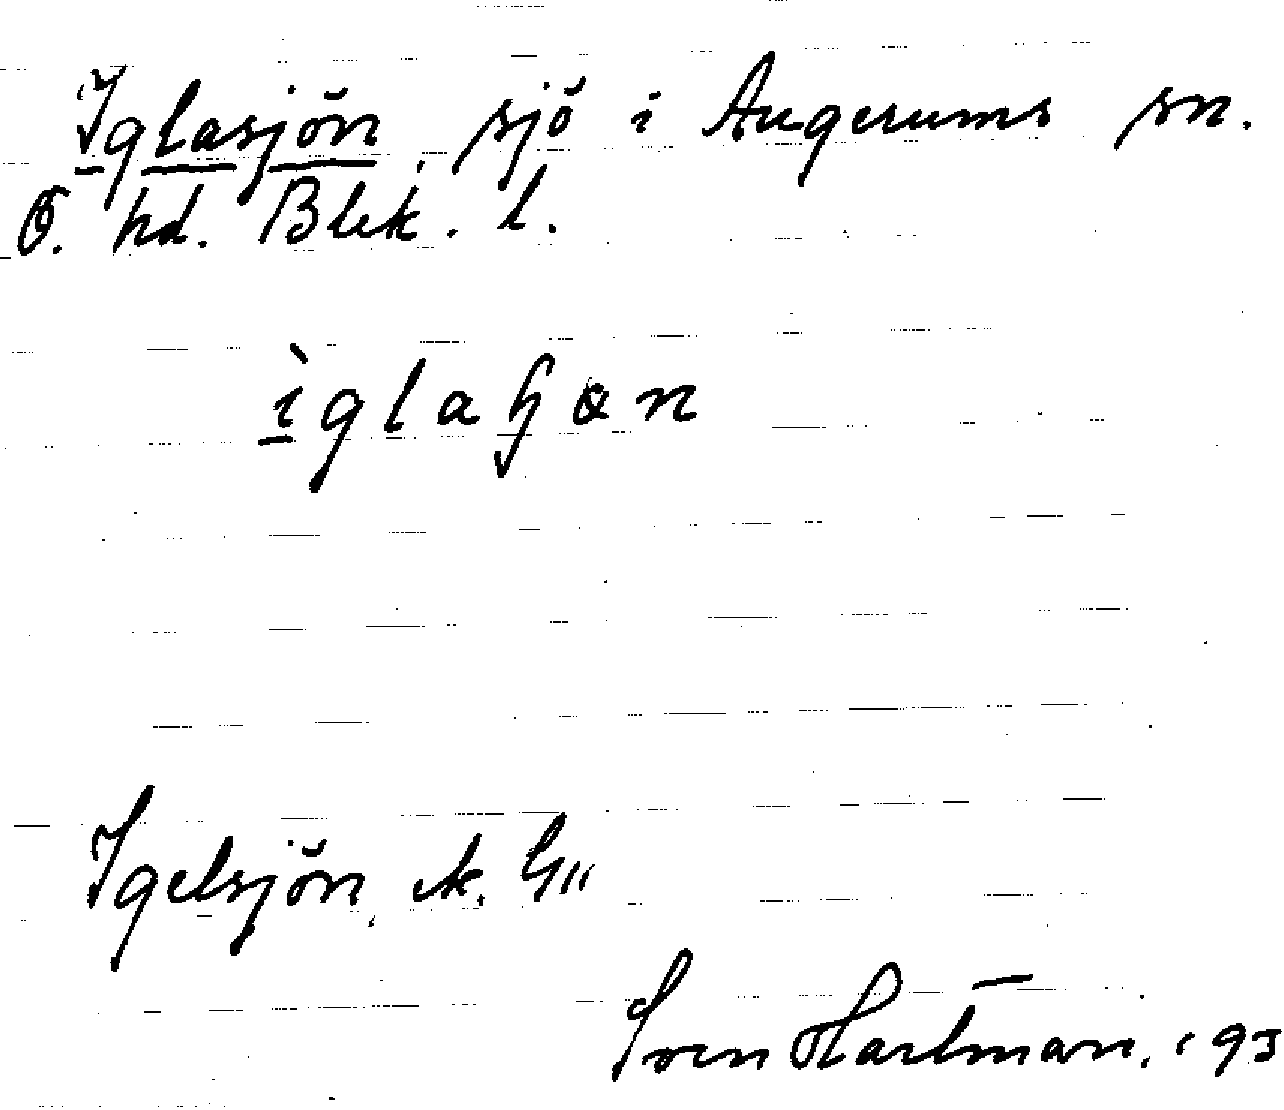 Iglasjön, sjö i Augerums sn.
Ö. hd. Blek. l.
Igelsjön, ek.
Sven Hartman. 193